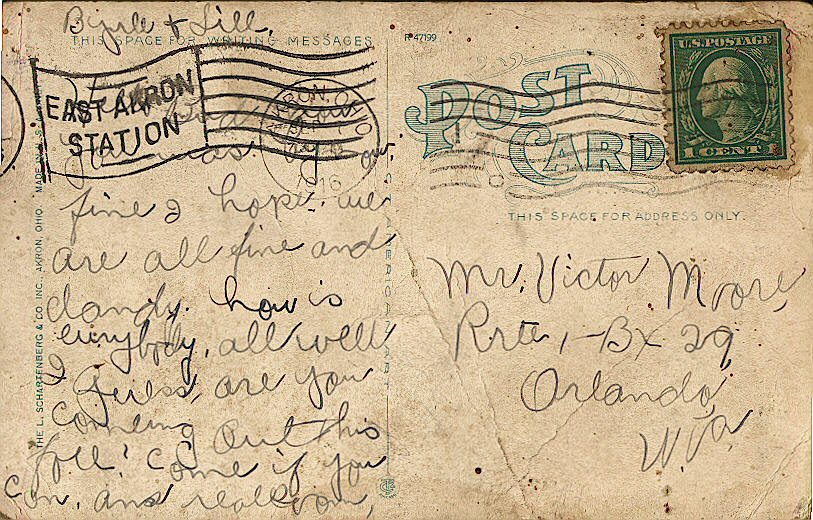 Byrle & Lill,
THIS SPACE FOR WRITING MESSAGES
R-47199
EAST AKRON
STATION
AKRON, O.
1916
POST
CARD
U.S. POSTAGE
1 CENT 1
THIS SPACE FOR ADDRESS ONLY.
fine I hope. we
are all fine and
dandy. how is
everybody, all well
I guess, are you
coming out this
fall? come if you
can. and
Mr. Victor Moore,
Rrte 1-Bx 29
Orlando,
W. Va.
THE L. SCHARTENBERG & CO. INC., AKRON, OHIO. MADE IN U.S.A.
AMERICAN ART